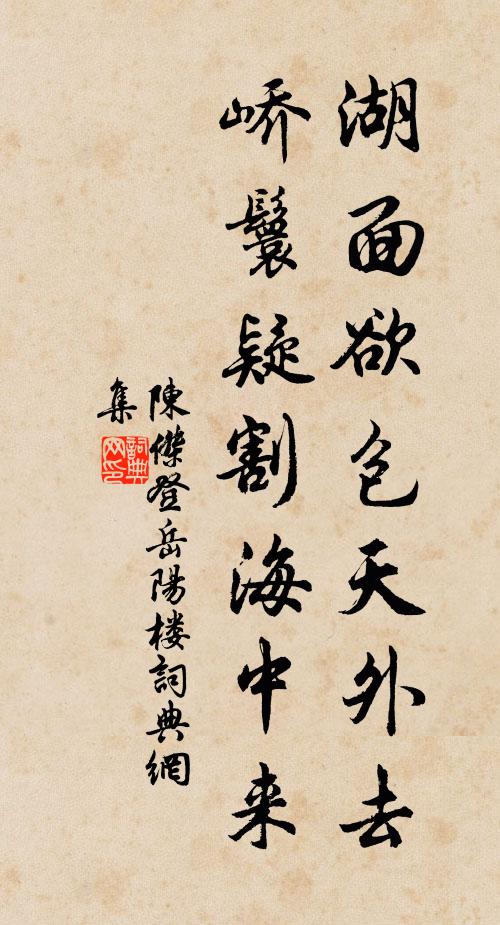 湖面欲包天外去
峤鬟疑割海中来
陳傑登岳陽楼詞典網
集
詞典网印